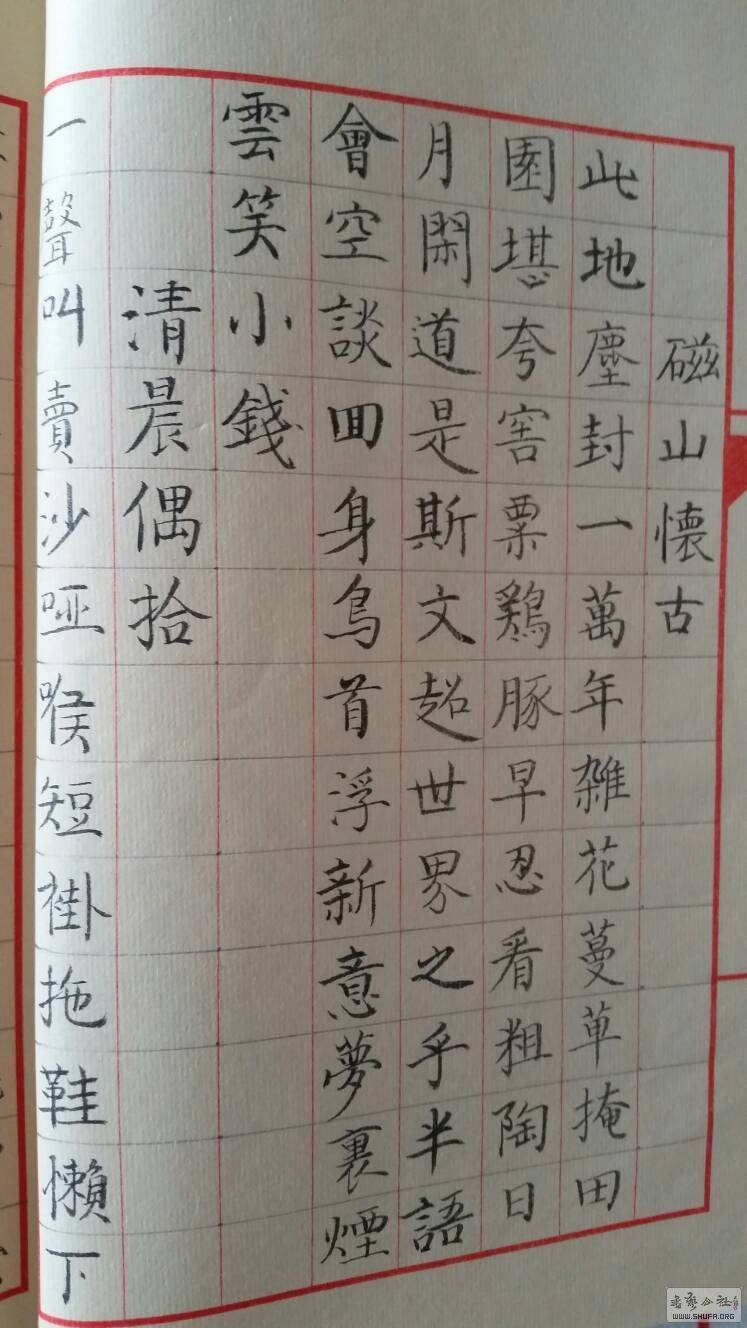 磁山懷古
此地塵封一萬年雑花蔓草掩田
園堪夸窖粟鷄豚早忍看粗陶日
月閑道是斯文超世界之乎半語
會空談回身鳥首浮新意夢裏煙
雲笑小錢
清晨偶拾
一聲叫賣沙啞喉短褂拖鞋懶下
WWW.SHUFA.ORG